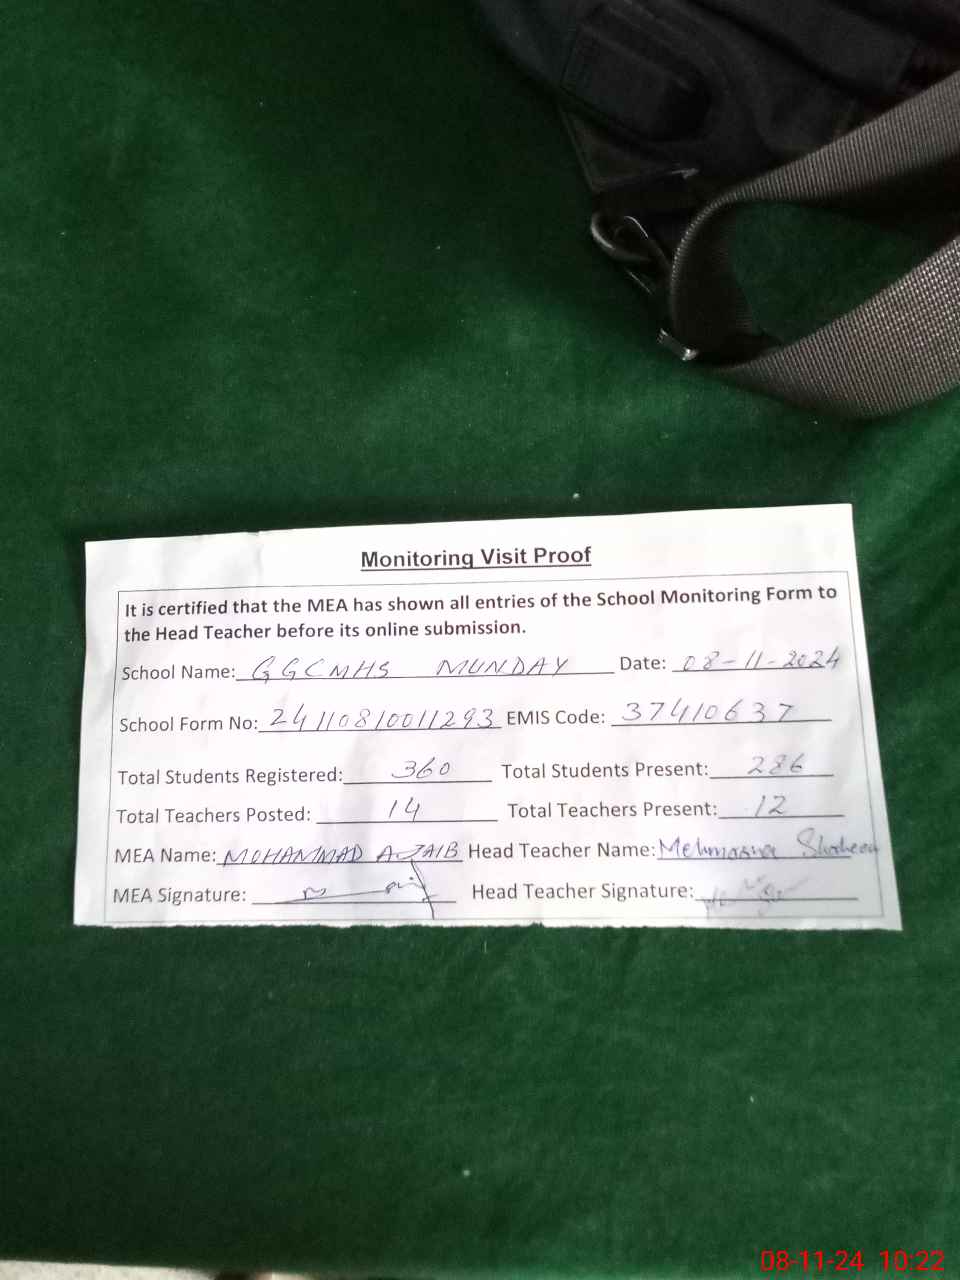 Monitoring Visit Proof
It is certified that the MEA has shown all entries of the School Monitoring Form to
the Head Teacher before its online submission.
School Name: GGCMHS MUNDAY Date: 08-11-2024
School Form No: 24110810011293 EMIS Code: 37410637
Total Students Registered: 360 Total Students Present: 286
Total Teachers Posted: 14 Total Teachers Present: 12
MEA Name: MOHAMMAD AJAIB Head Teacher Name: Shaheen
MEA Signature: Head Teacher Signature:
08-11-24 10:22